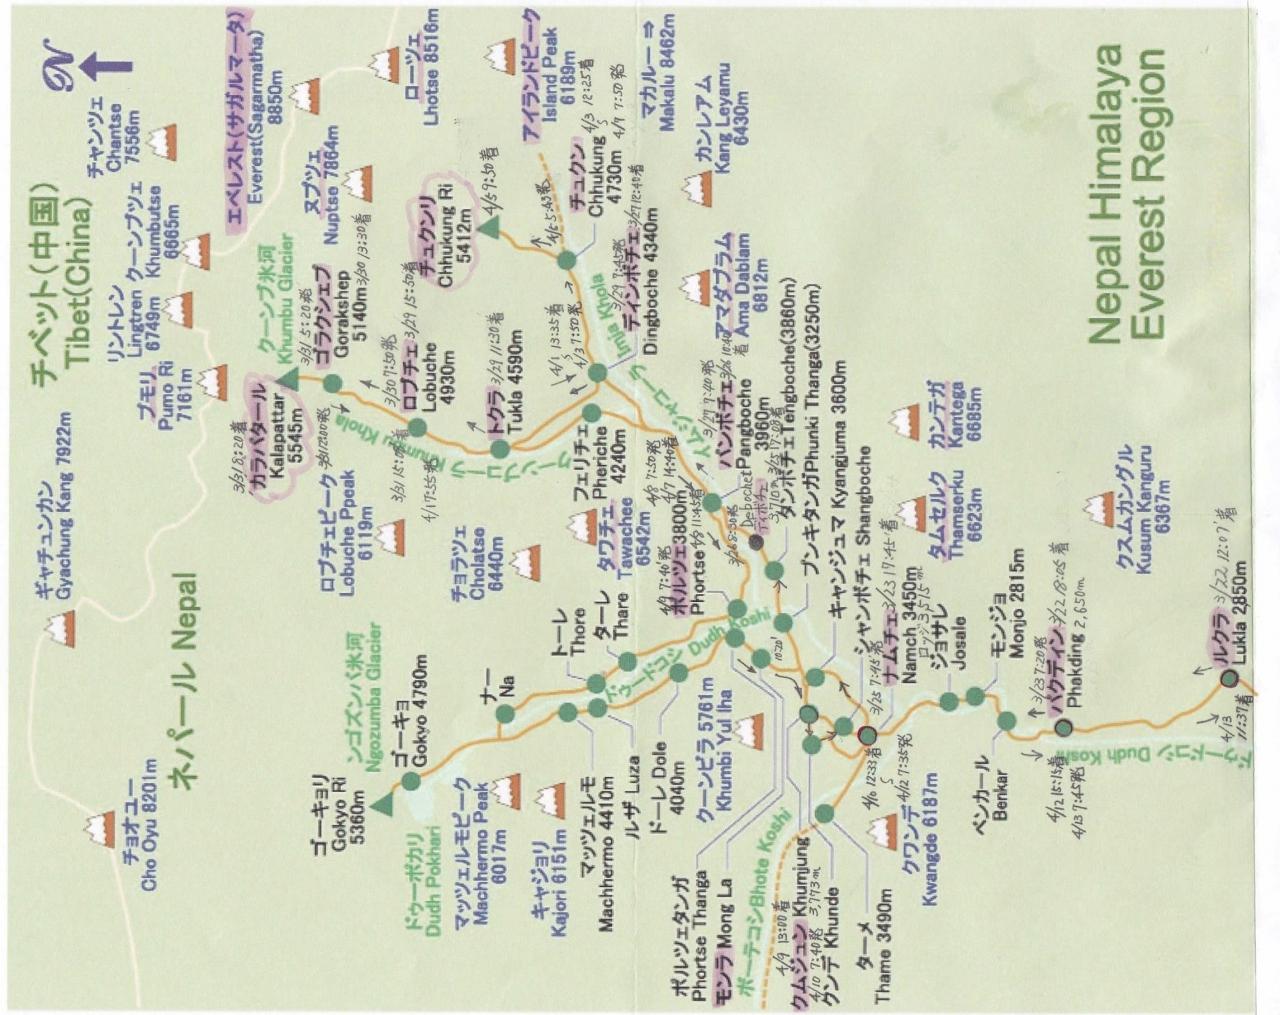 Nepal Himalaya
Everest Region
N
チベット(中国)
Tibet(China)
ネパール Nepal
ギャチュンカン
Gyachung Kang 7922m
チョオユー
Cho Oyu 8201m
プモリ
Pumo Ri
7161m
リントレン
Lingtren
6749m
クーンブツェ
Khumbutse
6665m
チャンツェ
Chantse
7556m
エベレスト(サガルマータ)
Everest(Sagarmatha)
8850m
ヌプツェ
Nuptse 7864m
ローツェ
Lhotse 8516m
アイランドピーク
Island Peak
6189m
マカルー ⇒
Makalu 8462m
カンレアム
Kang Leyamu
6430m
アマダブラム
Ama Dablam
6812m
カンテガ
Kantega
6685m
タムセルク
Thamserku
6623m
クスムカングル
Kusum Kanguru
6367m
クーンブ氷河
Khumbu Glacier
カラパタール
Kalapattar
5545m
3/31 5:20発
ゴラクシェプ
Gorakshep
5140m 3/30 13:30着
3/30 7:50発
ロブチェ 3/29 15:50着
Lobuche
4930m
トクラ 3/29 11:30着
Tukla 4590m
4/1 7:55発
チュクンリ
Chhukung Ri
5412m
4/5 9:50着
チュクン
Chhukung 4/3 12:25着
4730m 4/7 7:50発
4/1 13:35着
4/3 7:50発
ディンボチェ 3/27 12:40着
Dingboche 4340m
3/29 7:45発
Imja Khola
イムジャコーラ
Khumbu Khola
クーンブコーラ
フェリチェ
Pheriche
4240m
パンボチェ
Pangboche
3960m
3/27 7:40発
4/8 7:50発
4/7 14:40着
Deboche
ディボチェ
タンボチェTengboche(3860m)
プンキタンガPhunki Thanga(3250m)
キャンジュマ Kyangjuma 3600m
シャンボチェ Shangboche
ナムチェ 3/23 17:45着
Namch 3450m
3/25 7:45発
ジョサレ
Josale
モンジョ
Monjo 2815m
3/23 7:20発
パクディン 3/22 18:05着
Phakding 2,650m
ルクラ 3/22 12:07着
Lukla 2850m
4/13
11:37着
4/12 15:15着
4/13 7:45発
ベンカール
Benkar
ドゥードコシ Dudh Koshi
4/10 12:33着
4/12 7:35発
クワンデ
Kwangde 6187m
ターメ
Thame 3490m
クンデ Khunde
クムジュン Khumjung
4/9 13:00着
4/10 7:40発
ボーテコシBhote Koshi
モンラ Mong La
ポルツェタンガ
Phortse Thanga
ポルツェ3800m
Phortse
4/9 7:40発
4/8 11:45着
クーンビラ 5761m
Khumbi Yul lha
ドゥードコシ Dudh Koshi
ドーレ Dole
4040m
ルザ Luza
マッツェルモ
Machhermo 4410m
キャジョリ
Kajori 6151m
マッツェルモピーク
Machhermo Peak
6017m
ドゥーポカリ
Dudh Pokhari
ゴーキョリ
Gokyo Ri
5360m
ゴーキョ
Gokyo 4790m
ンゴズンバ氷河
Ngozumba Glacier
ナー
Na
トーレ
Thore
ターレ
Thare
タワチェ
Tawachee
6542m
チョラツェ
Cholatse
6440m
ロブチェピーク
Lobuche Ppeak
6119m